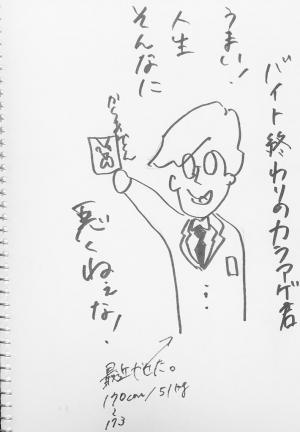 バイト終わりのカラアゲ君
うまい!
人生
そんなに
悪くねぇな!
最近やせた。
170cm/51kg
〜
173